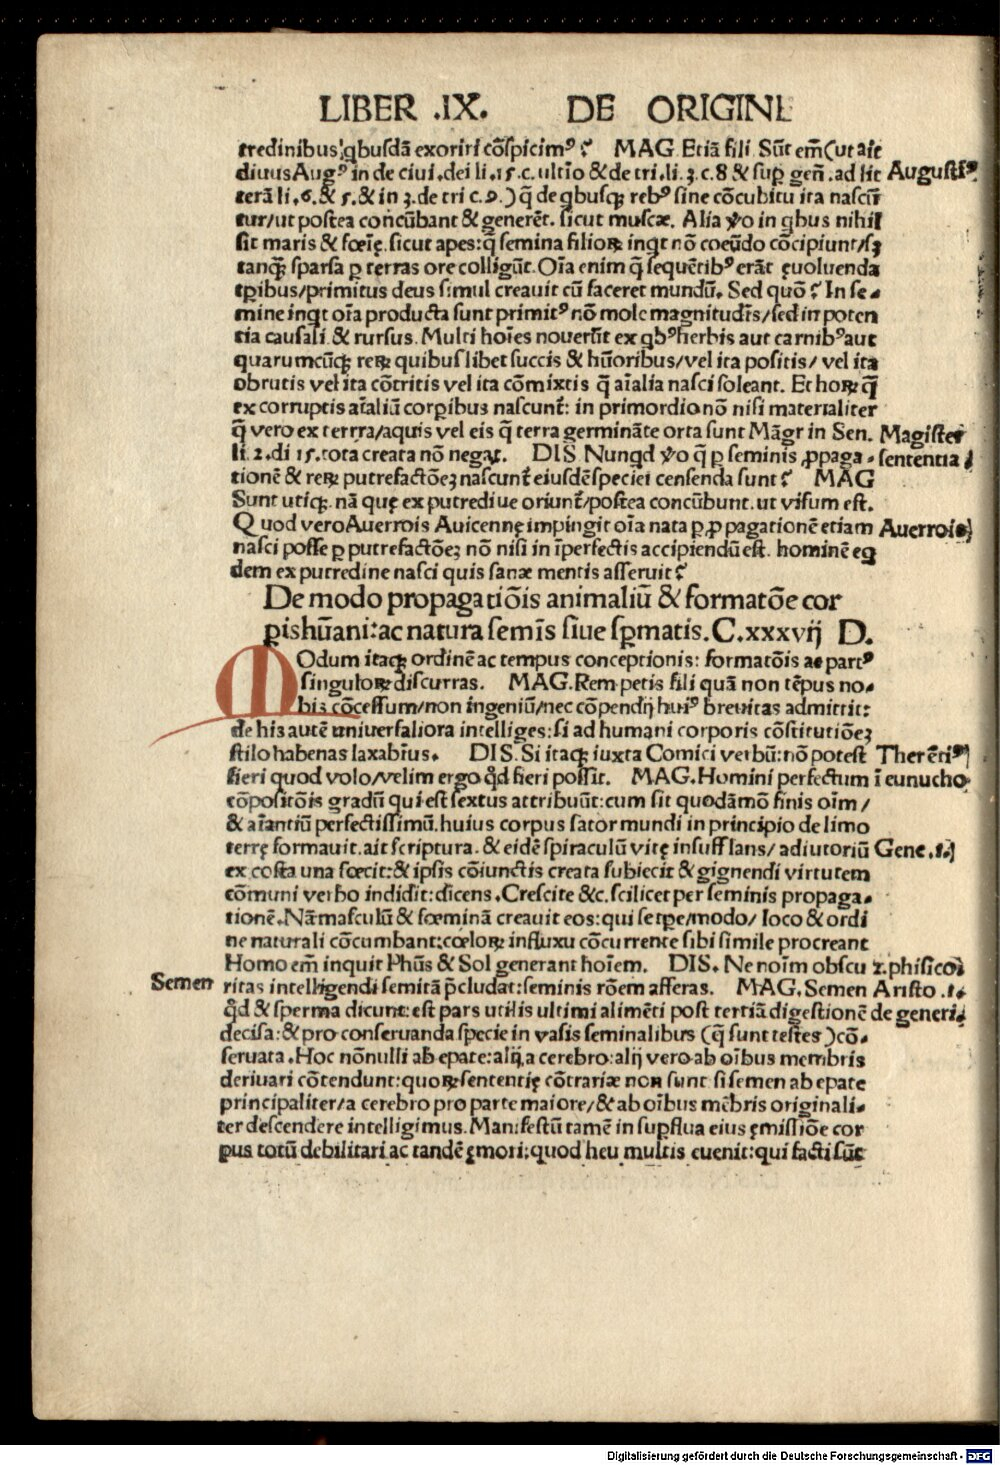 LIBER .IX. DE ORIGINE
tredinibus ꝗbusdā exoriri cōspicimꝰ? MAG. Etiā fili. Sūt em̄ (ut ait
diuus Augꝰ in de ciui. dei li. 15. c. ultīo & de tri. li. 3. c. 8 & suꝑ gen̄. ad lit Augustiꝰ
terā li. 6. & 5. & in 3. de tri c. 9.) q̄ de ꝗbusꝗ rebꝰ sine cōcubitu ita nascūt
tur/ut postea concūbant & generēt. sicut muscæ. Alia ꝟo in ꝗbus nihil
sit maris & fœīę. sicut apes: q̄ semina filioꝝ inꝗt nō coeūdo cōcipiunt/sꝫ
tanꝗ̄ sparsa ꝑ terras ore colligūt. Oīa enim q̄ sequētibꝰ erāt ęuoluenda
tꝑibus/primitus deus simul creauit cū faceret mundū. Sed quō? In se-
mine inꝗt oīa producta sunt primitꝰ nō mole magnitudīs/sed in poten
tia causali. & rursus. Multi hoīes nouerūt ex ꝗbꝰ herbis aut carnibꝰ aut
quarumcūꝗ reꝝ quibuslibet succis & hūoribus/vel ita positis/ vel ita
obrutis vel ita cōtritis vel ita cōmixtis q̄ aīalia nasci soleant. Et hoꝝ q̄
ex corruptis aīaliū corꝑibus nascunt̄: in primordio nō nisi materialiter
q̄ vero ex terrra/aquis vel eis q̄ terra germināte orta sunt Māgr in Sen. Magister
li. 2. di 15. tota creata nō negat. DIS Nunꝗd ꝟo q̄ ꝑ seminis ꝓpaga- sententiaꝝ
tionē & reꝝ putrefactōeꝫ nascunt̄ eiusdē speciei censenda sunt? MAG
Sunt utiꝗ. nā quę ex putredīue oriunt̄/postea concūbunt. ut visum est.
Quod vero Auerrois Auicennę impingit oīa nata ꝑ ꝓpagationē etiam Auerrois
nasci posse ꝑ putrefactōeꝫ nō nisi in īperfectis accipiendū est. hominē eꝗ
dem ex putredine nasci quis sanæ mentis asseruit?
De modo propagatiōis animaliū & formatōe cor
ꝑis hūani: ac natura semīs siue sꝑmatis. C.xxxvij D.
MOdum itaꝗ ordinē ac tempus conceptionis: formatōis ac partꝰ
singuloꝝ discurras. MAG. Rem petis fili quā non tēpus no-
bis cōcessum/non ingeniū/nec cōpendij huiꝰ breuitas admittit:
de his autē uniuersaliora intelliges: si ad humani corporis cōstitutiōeꝫ
stilo habenas laxabīus. DIS. Si itaꝗ iuxta Comici verbū: nō potest Therētiꝰ
fieri quod volo/velim ergo ꝗ̄d fieri possit. MAG. Homini perfectum ī eunucho
cōpositōis gradū qui est sextus attribuūt: cum sit quodāmō finis oīm/
& aīantiū perfectissimū. huius corpus sator mundi in principio de limo
terrę formauit. ait scriptura. & eidē spiraculū vitę insufflans/ adiutoriū Gene. 1.
ex costa una fœcit: & ipsis cōiunctis creata subiecit & gignendi virtutem
cōmuni verbo indidit: dicens. Crescite &c. scilicet per seminis propaga-
tionē. Nā masculū & fœminā creauit eos: qui se tꝑe/modo/ loco & ordi
ne naturali cōcumbant: cœloꝝ influxu cōcurrente sibi simile procreant
Homo em̄ inquit Phūs & Sol generant hoīem. DIS. Ne noīm obscu 2. phisicoꝝ
Semen ritas intelligendi semitā p̄cludat: seminis rōem afferas. MAG. Semen Aristo .1.
ꝗ̄d & sperma dicunt: est pars utilis ultimi alimēti post tertiā digestionē de generi.
decisa: & pro conseruanda specie in vasis seminalibus (q̄ sunt testes) cō-
seruata. Hoc nōnulli ab epate: alij a cerebro: alij vero ab oībus membris
deriuari cōtendunt: quoꝝ sententię cōtrariæ non sunt si semen ab epate
principaliter/a cerebro pro parte maiore/& ab oībus mēbris originali-
ter descendere intelligimus. Manifestū tamē in suꝑflua eius ęmissiōe cor
pus totū debilitari ac tandē ęmori: quod heu multis euenit: qui facti sūt
Digitalisierung gefördert durch die Deutsche Forschungsgemeinschaft - DFG